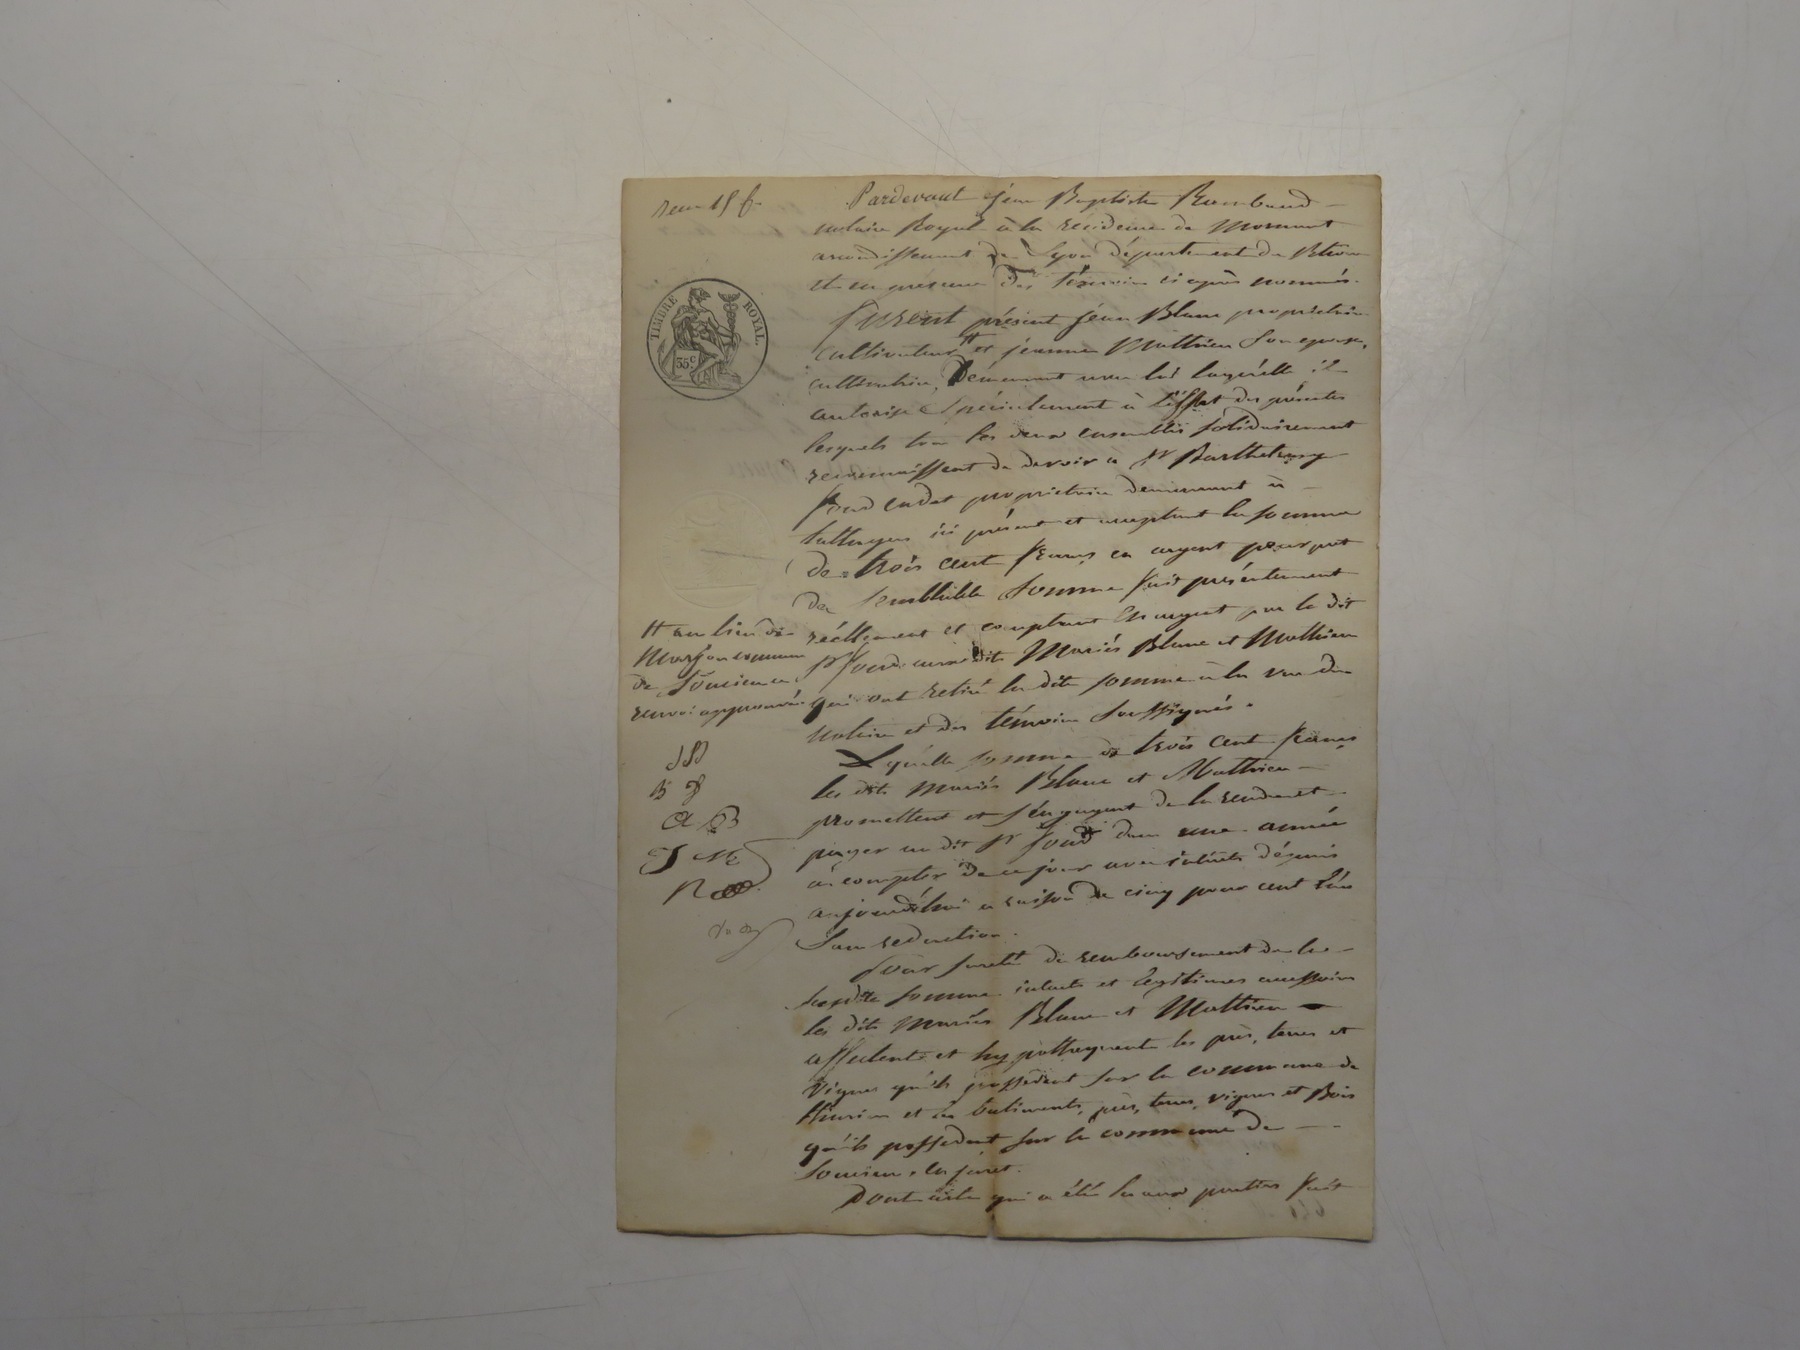 Pardevant jean Baptiste Rambaud
notaire Royal à la residence de Mornant
arrondissement de Lyon département du Rhone
et en présence des témoins ci après nommés.
furent présent jean Blanc proprietaire
cultivateur # et jeanne Mathieu son epouse,
cultivatrice, demeurant avec lui laquelle il
autorise specialement à l'effet des présentes
lesquels tous les deux ensembles solidairement
reconnaissent de devoir à Sr Barthelemy
fond cadet proprietaire demeurant à
ici présent et acceptant la somme
de trois cent francs en argent pour pret
de semblable somme fait présentement
réellement et comptant en argent par le dit
Sr fond aux dits Mariés Blanc et Mathieu
qui ont retiré la dite somme à la vue du
notaire et des témoins soussignés.
Laquelle somme de trois cent francs
les dits mariés Blanc et Mathieu
promettent et s'engagent de la rendre et
payer au dit Sr fond dans une année
à compter de ce jour avec intérêts dépuis
aujourd'hui à raison de cinq pour cent l'an
sans reduction.
pour sureté du remboursement de la
susdite somme intérêts et legitimes accessoires
les dits Mariés Blanc et Mathieu
affectent et hypothequent les près, terres et
vignes qu'ils possedent sur la commune de
Thurins et les batiments, près, terres, vignes et Bois
qu'ils possedent sur la commune de
Soucieu en jarret.
Dont acte qui a été lu aux parties fait
TIMBRE ROYAL.
35 c.
# au lieu de
commune
de Soucieu
renvoi approuvé
JB
B f